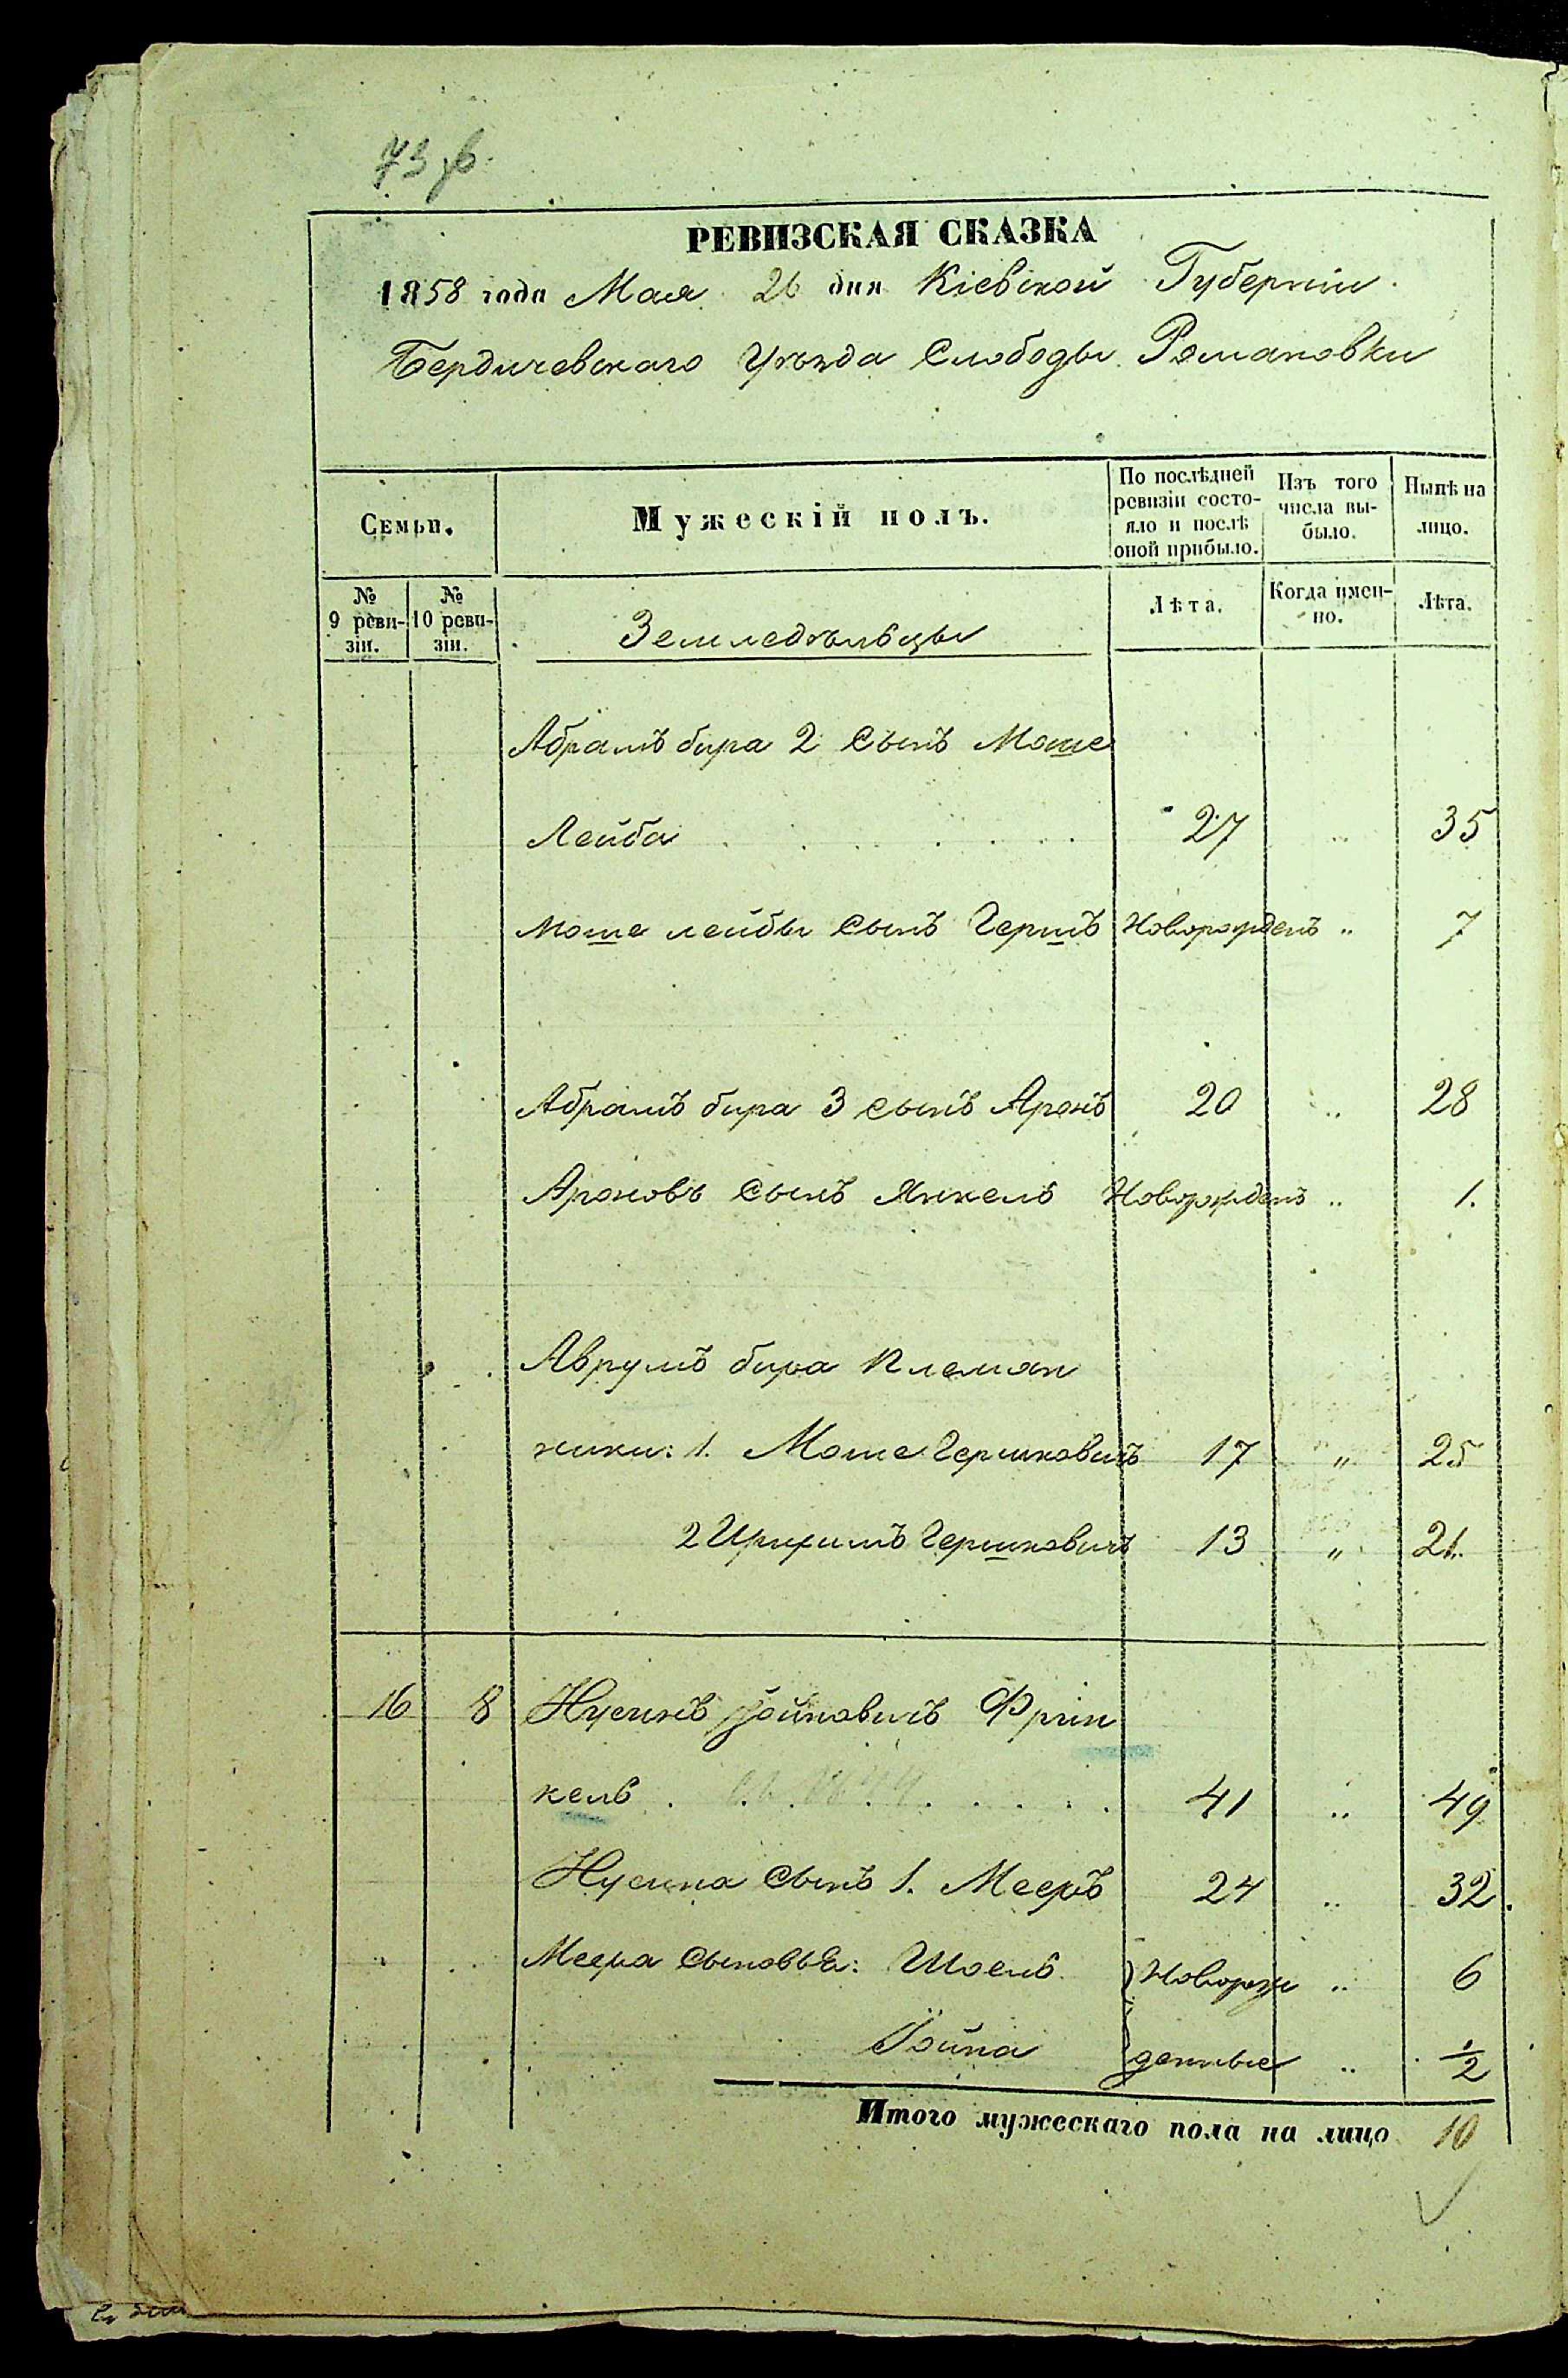 РЕВИЗСКАЯ СКАЗКА
1858 года Мая 26 дня Кіевской Губерніи
Бердичевскаго Уѣзда Слободы Романовки
Семьи.
Мужескій полъ.
По послѣдней ревизіи состояло и послѣ оной прибыло.
Изъ того числа выбыло.
Нынѣ на лицо.
№ 9 ревизіи.
№ 10 ревизіи.
Земледѣльцы
Лѣта.
Когда именно.
Лѣта.
Абрамъ бира 2 Сынъ Моше
Лейба 27 „ 35
Моше лейбы Сынъ Гершъ Новорожденъ „ 7
Абрамъ бира 3 сынъ Аронъ 20 „ 28
Ароновъ Сынъ Янкель Новорожденъ „ 1.
Аврумъ бира Племян
ники: 1. Моше Гершковичъ 17 „ 25
2 Гершковичъ 13 „ 21.
16 8 Нусинъ Іойновичъ Френ
кель 41 „ 49
Нусина Сынъ 1. Мееръ 24 „ 32
Меера Сыновья: Шоель Новорож „ 6
Іойна денные „ 1/2
Итого мужескаго пола на лицо 10